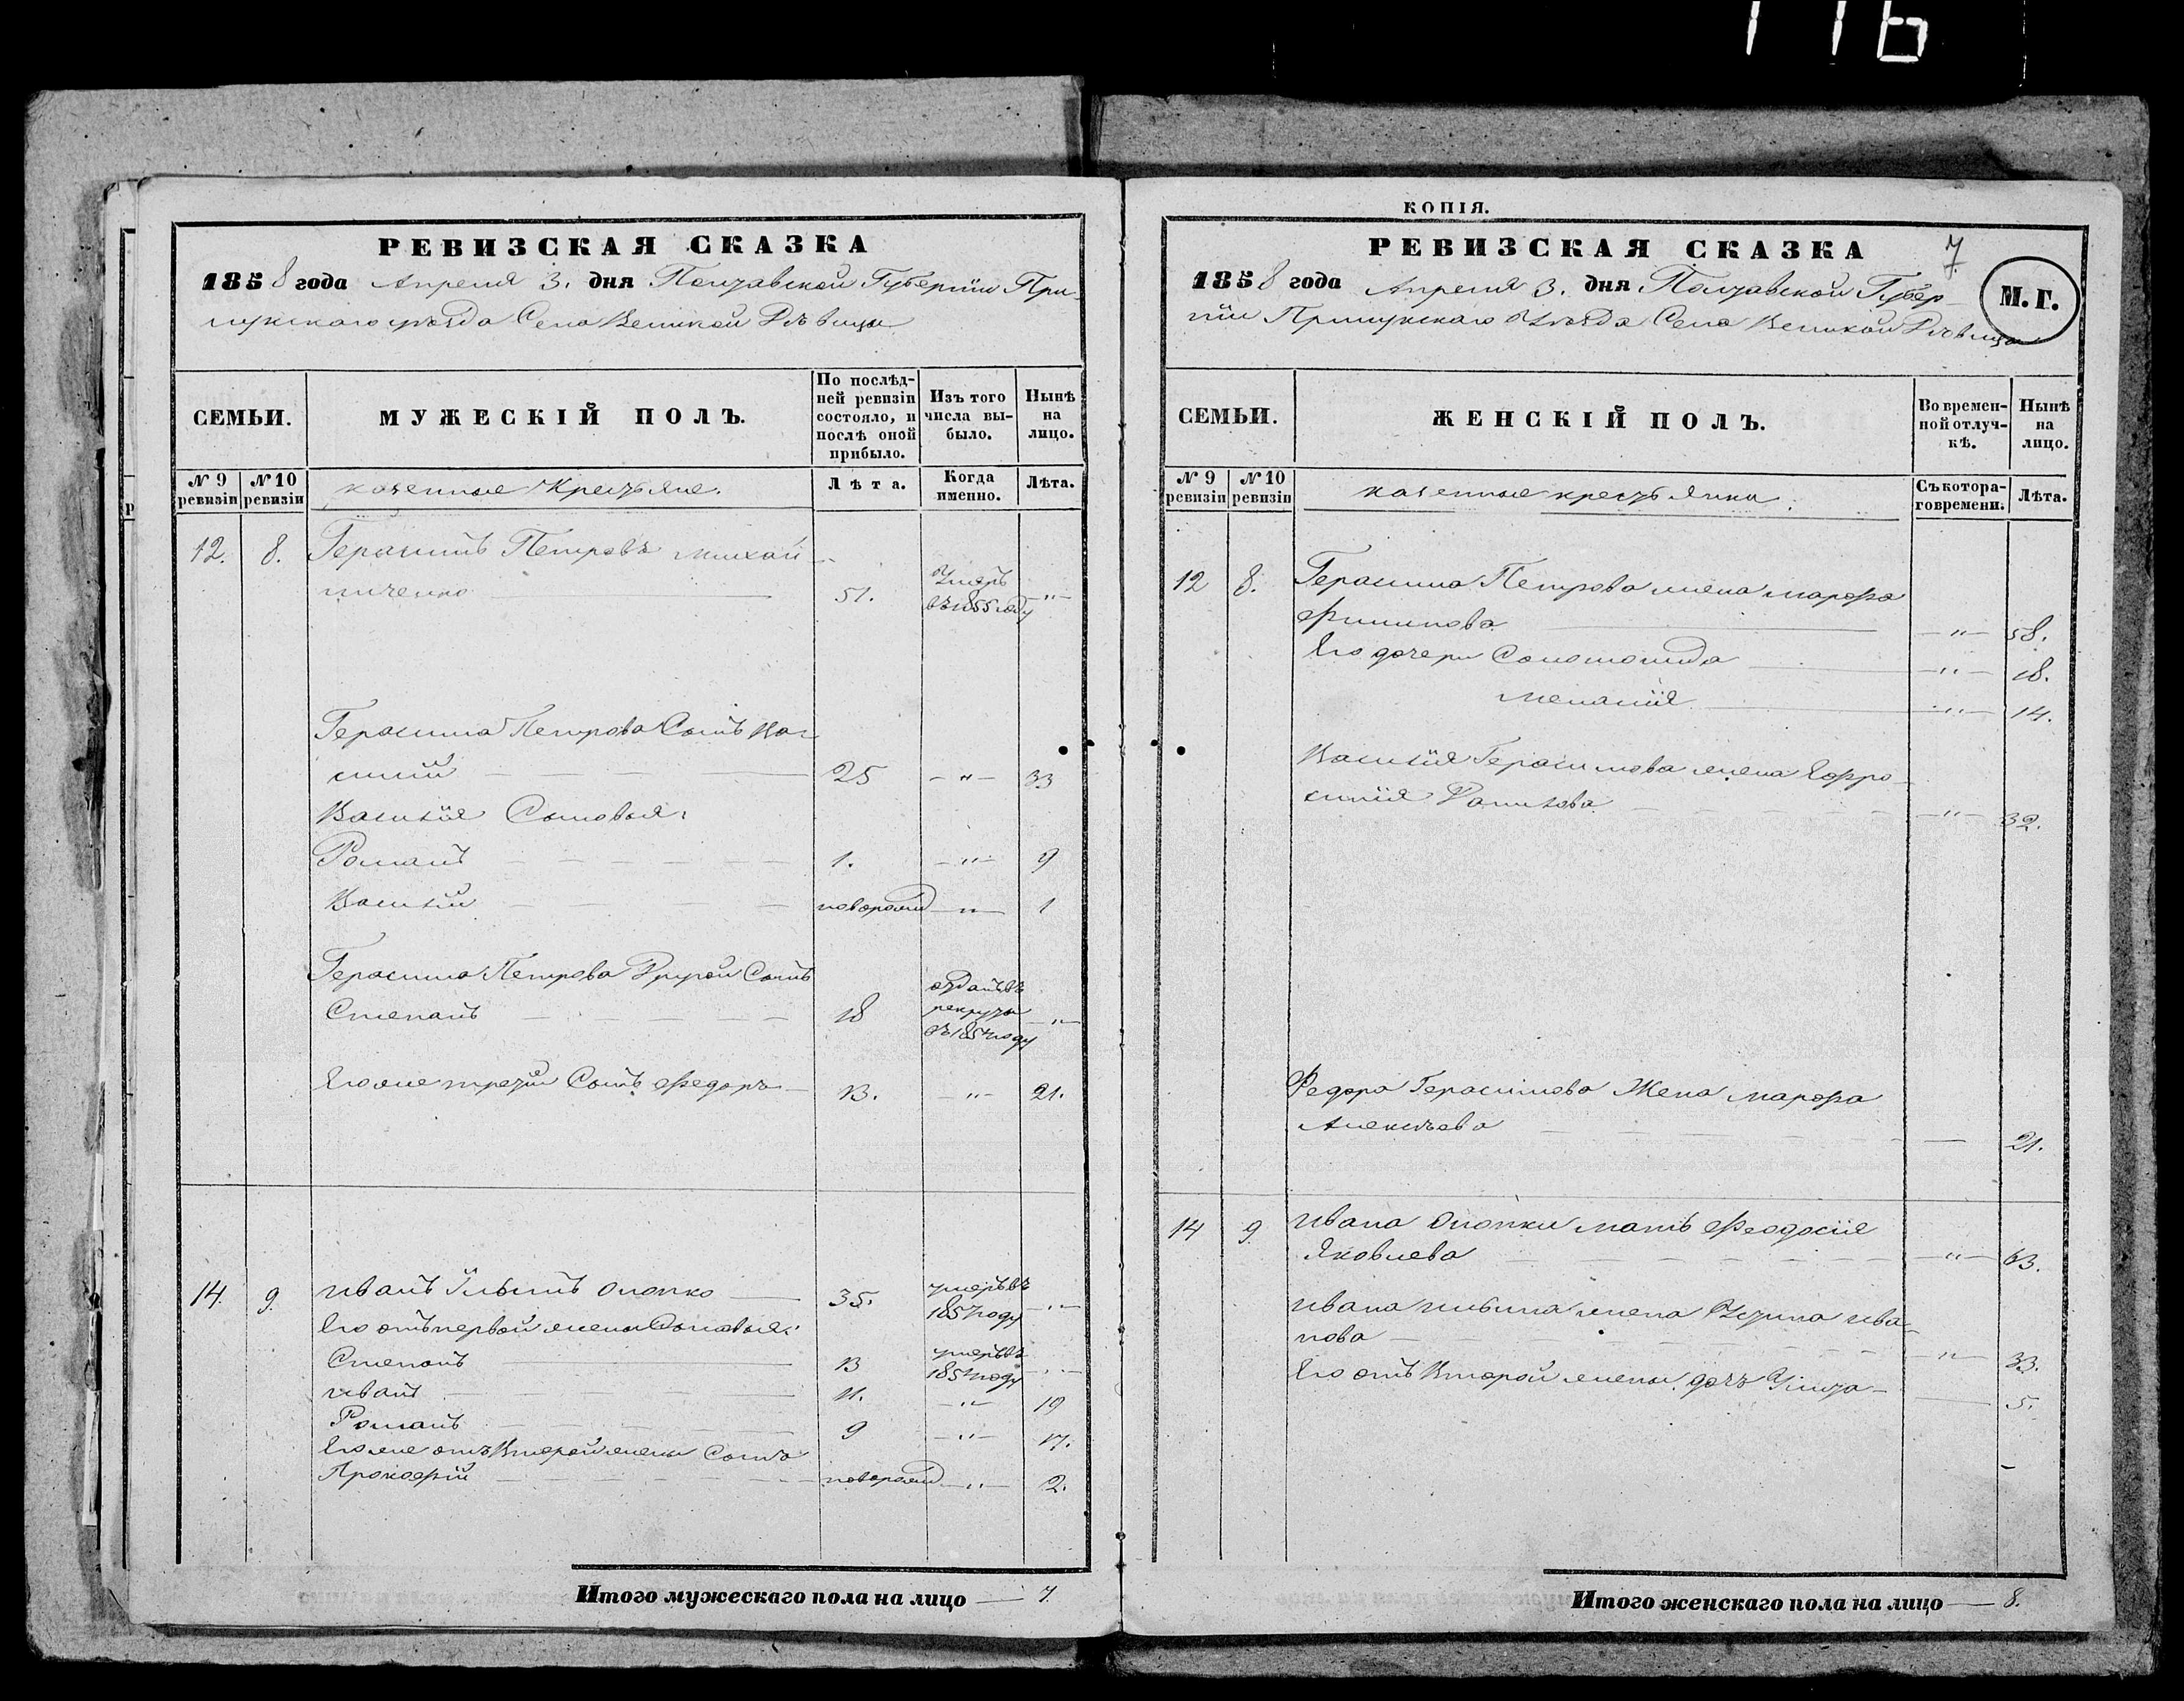 116
РЕВИЗСКАЯ СКАЗКА
1858 года Апреля 3. дня Полтавской Губернїи При-
лукскаго уѣзда Села Великой Дѣвицы
СЕМЬИ.
МУЖЕСКІЙ ПОЛЪ.
По послѣд-
ней ревизіи
состояло, и
послѣ оной
прибыло.
Изъ того
числа вы-
было.
Нынѣ
на
лицо.
№ 9 ревизіи
№ 10 ревизіи
казенные Крестьяне.
Лѣта.
Когда именно.
Лѣта.
12. 8. Герасимъ Петровъ Михай-
личенко 51. Умеръ въ 1855 году "
Герасима Петрова Сынъ Ва-
силий 25 " 33
Василия Сыновья:
Романъ 1. " 9
Василий новорожд " 1
Герасима Петрова Другой Сынъ
Степанъ 18 отданъ въ рекруты въ 1854 году "
Его же третий Сынъ Федоръ 13. " 21.
14. 9. Иванъ Ильинъ Олопко 35. умеръ въ 1857 году "
Его отъ первой жены Сыновья:
Степанъ 13 умеръ въ 1854 году "
Иванъ 11. " 19
Романъ 9 " 17.
Его же отъ Второй жены Сынъ
Прокофий новорожд " 2.
Итого мужескаго пола на лицо 7.
КОПІЯ.
РЕВИЗСКАЯ СКАЗКА
7
1858 года Апреля 3. дня Полтавской Губер-
нїи Прилукскаго Уѣзда Села Великой Дѣвицы
М. Г.
СЕМЬИ.
ЖЕНСКІЙ ПОЛЪ.
Во времен-
ной отлуч-
кѣ.
Нынѣ
на
лицо.
№ 9 ревизіи
№ 10 ревизіи
казенные крестьянки
Съ котора-
го времени.
Лѣта.
12 8. Герасима Петрова жена Марфа
Филипова " 58.
Его дочери Соломонида " 18.
Меланїя " 14.
Василїя Герасимова жена Ефро-
синїя Данилова " 32.
Федора Герасимова Жена Марфа
Алексѣева 21.
14 9. Ивана Олопки мать Феодосїя
Яковлева " 63.
Ивана Ильина жена Устина Ива-
нова " 33.
Его отъ Второй жены дочь 5.
Итого женскаго пола на лицо 8.